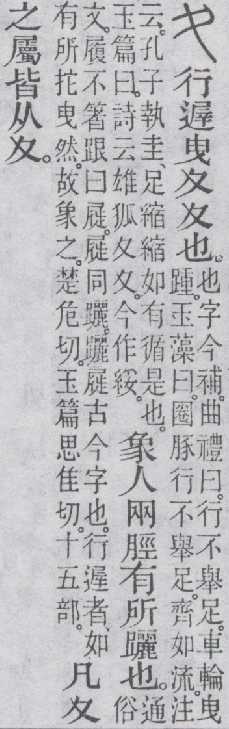 夊行遲曳夊夊也。也字今補。曲禮曰。行不舉足。車輪曳
踵。玉藻曰。圈豚行不舉足。齊如流。注
云。孔子執圭、足縮縮如有循是也。
玉篇曰。詩云雄狐夊夊。今作綏。象人兩脛有所躧也。通
俗
文。履不箸跟曰屣。屣同躧。躧屣古今字也。行遲者、如
有所拕曳然。故象之。楚危切。玉篇思隹切。十五部。凡夊
之屬皆从夊。